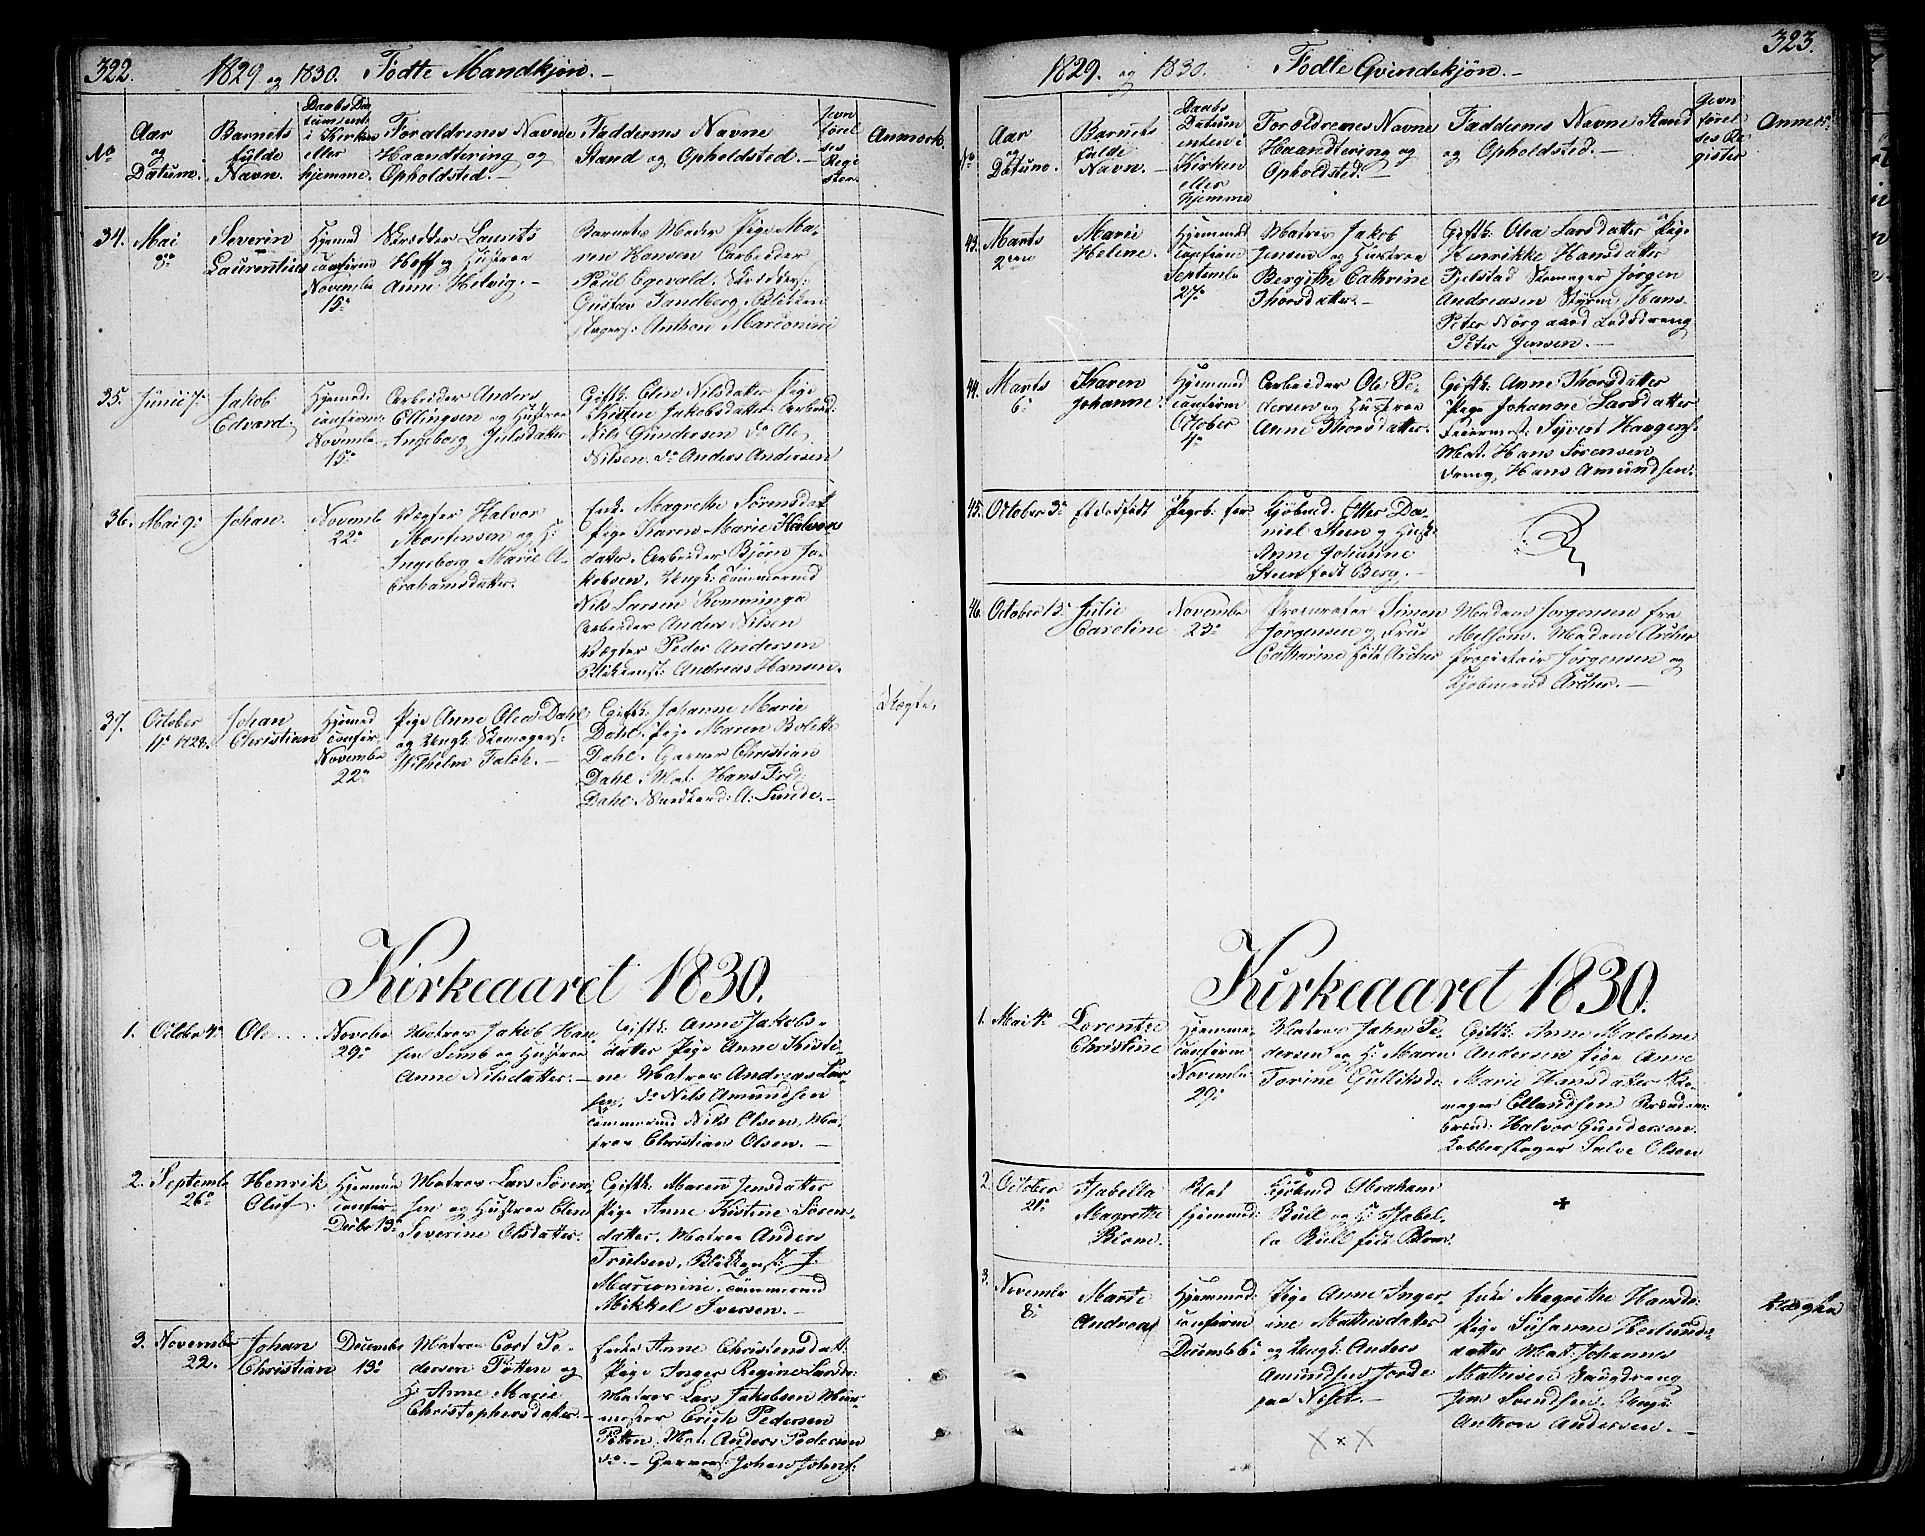 322. 1829 og 1830. Fødte Mandkjøn.
No
Aar og Datum.
Barnets fulde Navn.
Daabs Datum enten i Kirken eller hjemme.
Foraldrenes Navne Haandtering og Opholdsted.
Faddernes Navne Stand og Opholdsted.
Jevnførelses Register
Anmærk.
34. Mai 8de
Severin
Laurentius
Hjemmed
confirm
Novembr
15de
Skrædder Laurits
Hoff og Hustrue
Anne Helvig.
Barnets Moder Pige Ma-
ren Hansen Arbeider
Poul Egevald, Skrædders:
Gustav Sandberg, Blikkens
lagers: Anthon Marconini
35. Junii 7de
Jakob
Edvard.
Hjemmed
confirm:
Novembr
15de
Arbeider Anders
Ellingsen og Hustrue
Ingeborg Juelsdatter
Giftk: Elen Nilsdatter Pige
Kirsten Jakobsdatter Arbeid:
Nils Gundersen do Ole
Nilsen do Anders Andersen
36. Mai 9de
Johan.
Novembr
22de
Vægter Halvor
Mortensen og H:
Ingeborg Marie A-
brahamsdatter.
Enke Magrethe Sørensdat
Pige Karen Marie Halvors
datter Arbeider Bjørn Ja-
kobsen, Ungk: Tømmermd
Nils Larsen Romminga
Arbeider Anders Nilsen
Vægter Peder Andersen
Blikkenst: Andreas Hansen.
37. October
11de 1829.
Johan
Christian
Hjemmed
confir
Novembr
22de
Pige Anne Olea Dahl
og Ungk: Skomagers:
Wilhelm Falch.
Giftk: Johanne Marie
Dahl. Pige Maren Bolette
Dahl. Garver Christian
Dahl. Mat: Hans Fred:
Dahl. A: Lunde.
Uægte.
Kirkeaaret 1830.
1. Octbr 4de
Ole
Novebr
29de
Matros Jakob Han-
sen Semb og Hustrue
Anne Nilsdatter.
Giftk: Anne Jakobs-
datter Pige Anne Kirsti-
ne Matros Andreas Lar-
sen, do Nils Amundsen
Tømmermd Nils Olsen, Ma-
tros Christian Olsen.
2. Septembr
26de
Henrik
Oluf.
Hjemme
confir-
Decbr 13de
Matros Lars Sören-
sen og Hustrue Elen
Severine Olsdatter.
Giftk: Maren Jensdatter
Pige Anne Kirstine Sören-
datter. Matros Anders
Trulsen, Blikkenst: J.
Marconini, Tømmermd
Mikkel Iversen.
3. Novembr
22.
Johan
Christian
Decembr
13de
Matros Cort Pe-
dersen Tötten og
H: Anne Marie
Christophersdatter.
Enke Anne Christensdatt:
Pige Inger Regine Larsd:
Matros Lars Jakobsen Mur-
mester Erich Pedersen
Tötten, Mat: Anders Pedersen
do. Garvers: Johan Johns:
1829. og 1830. Fødte Qvindekjøn. 323.
No
Aar og Datum.
Barnets fulde Navn.
Daabs Datum enten i Kirken eller hjemme
Foroldrenes Navne Haandtering og Opholdsted.
Faddernes Navne Stand og Opholdsted.
Jevnførelses Register
Anmerk.
43. Marts
2den
Marie
Helene.
Hjemmed
Confirm
Septembr
27de
Matros Jakob
Jensen og Hustrue
Bergithe Cathrine
Thorsdatter.
Giftk: Olea Larsdatter Pige
Henrikke Hansdatter
Fjelstad Skomager Jörgen
Andreasen Styrmd Hans
Peter Nörgaard Lodsdreng
Peter Jensen.
44. Marts
6de
Karen
Johanne.
Hjemmed
confirm
October
4de
Arbeider Ole Pe-
dersen og Hustrue
Anne Thorsdatter.
Giftk: Anne Thorsdatter
Pige Johanne Larsdatter
Feiermest: Syvert Haagens:
Mat: Hans Sörensen
Dreng Hans Amundsen.
45. October 3de
et dødfødt Pigeb: for
Kjöbmd. Otto Da-
niel Steen og Hust:
Anne Johanne
Steen født Berg.
46. October 13de
Julie
Caroline
Novembr
23de
Procurator Simon
Jörgensen og Frue
Catharine født Archer
Madam Jorgensen fra
Melsom. Madam Archer
Propietair Jörgensen og
Kjöbmand Archer.
Kirkeaaret 1830.
1. Mai 4de
Lorentze
Christine
Hjemme
confirm
Novembr
29de
Matros Jahn Pe-
dersen og H: Maren
Torine Gulliksdr
Giftk: Anne Malene
Andersen Pige Anne
Marie Hansdatter Sko-
mager Ellandsen
Halvor Gundersen
Kobberslager Salve Olsen
2. October
21de
Isabella
Magrethe
Blom.
Blot
hjemmed:
Kjöbmd Abraham
Bull og H: Isabel-
la Bull født Blom.
3. Novembr
8de
Marte
Andrea
Hjemmed:
confirm
Decembr 6te
Pige Anne Inger-
ine Mathisdatter
og Ungk: Anders
Amundsen Jorde
paa Nest.
Enke Magrethe Hansdr
Pige Susanne Herlands-
datter Mat: Johannes
Mathisen Saugdreng
Jens Svendsen. Ungk:
Anthon Andersen.
Uægte
x x x